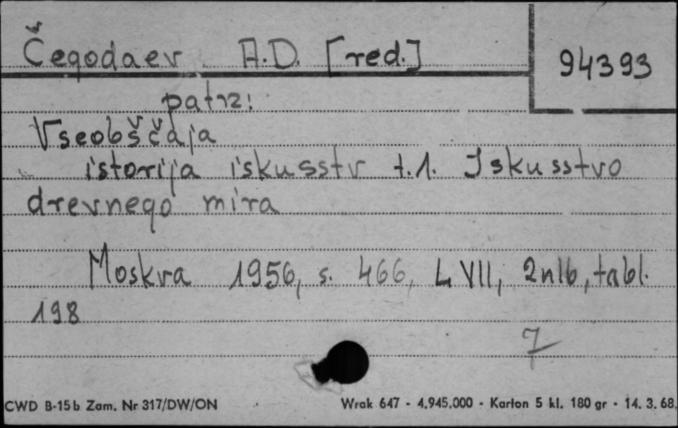 Čegodaev A.D. [red.]
94393
patrz:
Vseobščaja
istorija iskusstv t.1. Iskusstvo
drevnego mira
Moskva 1956, s. 466, LVII, 2nlb, tabl.
198
7
CWD B-15b Zam. Nr 317/DW/ON
Wrak 647 - 4.945.000 - Karton 5 kl. 180 gr - 14. 3. 68.